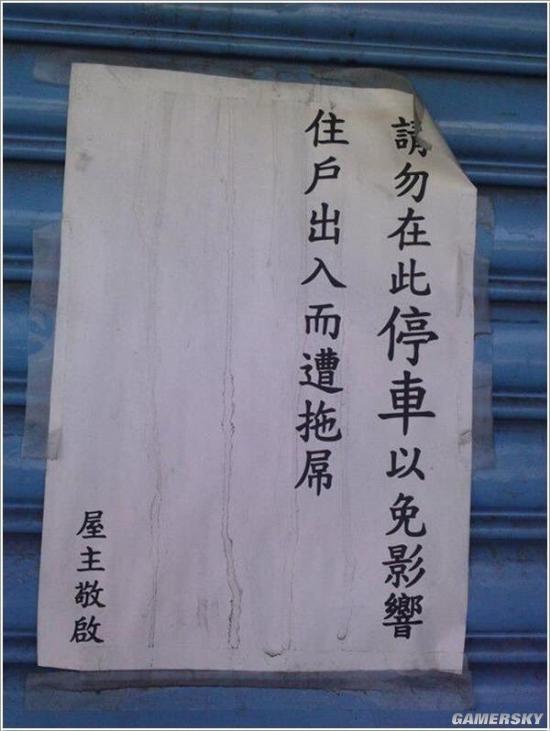 請勿在此停車以免影響
住戶出入而遭拖屌
屋主敬啟
GAMERSKY